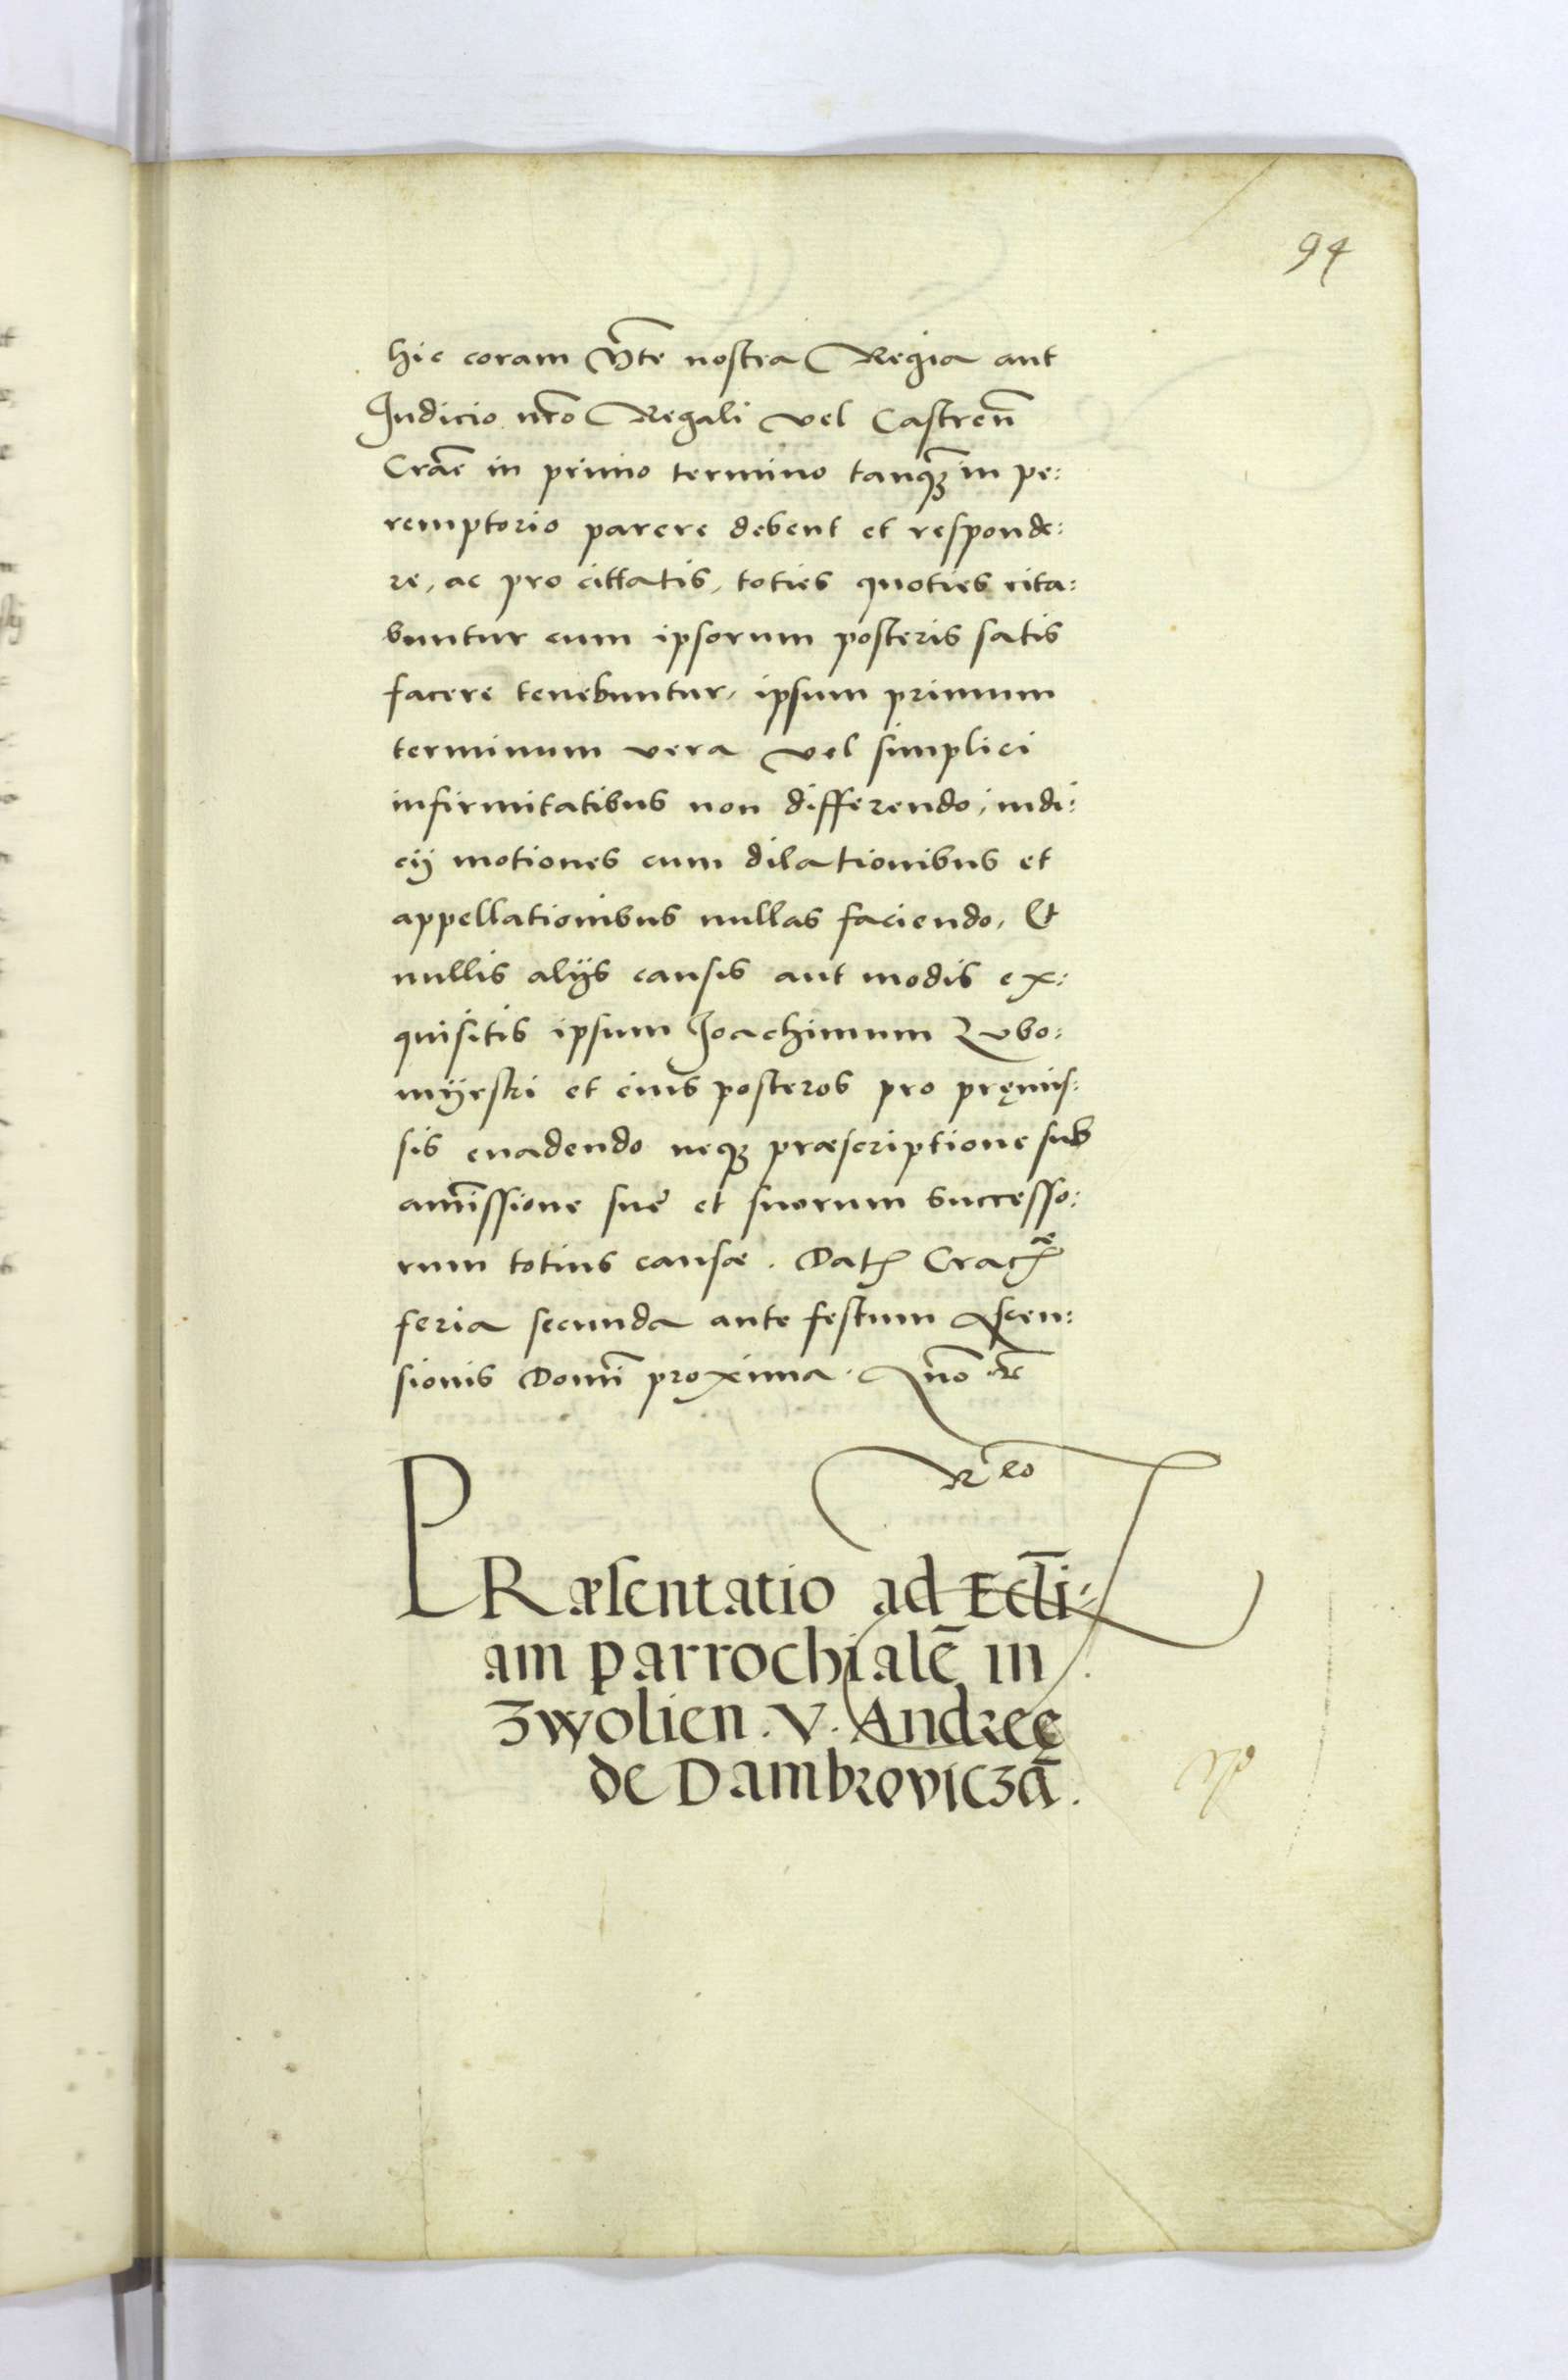 94
hic coram M̄te nostra Regia aut
Judicio nr̄o Regali vel Castren̄
Crāc̄ in primo termino tanqꝫ in pe:
remptorio parere debent et responde:
re, ac pro cittatis, toties quoties cita:
buntur cum ipsorum posteris satis
facere tenebuntur, ipsum primum
terminum vera vel simplici
infirmitatibus non differendo, iudi:
cij motiones cum dilationibus et
appellationibus nullas faciendo, Et
nullis alijs causis aut modis ex:
quisitis ipsum Joachimum Lubo:
mijrski et eius posteros pro pręmis:
sis euadendo neqꝫ præscriptione sub
amīssione sue et suorum successo:
rum totius causæ. Datꝭ Cracꝭæ
feria secunda ante festum Ascen:
sionis Domī proxima. Anno
PRæsentatio ad Eccl̄i:
am parrochialē in
Zwolien. V. Andreę
de Dambrovicza̅.